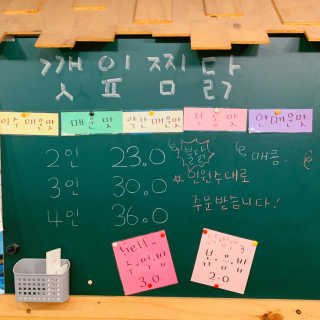 깻잎찜닭
아주매운맛 매운맛 약간매운맛 안매운맛
2인 23.0
3인 30.0 ☆ 인원수대로
4인 36.0 주문받습니다!
매콤.
Self~
주먹밥
3.0
볶음밥
2.0